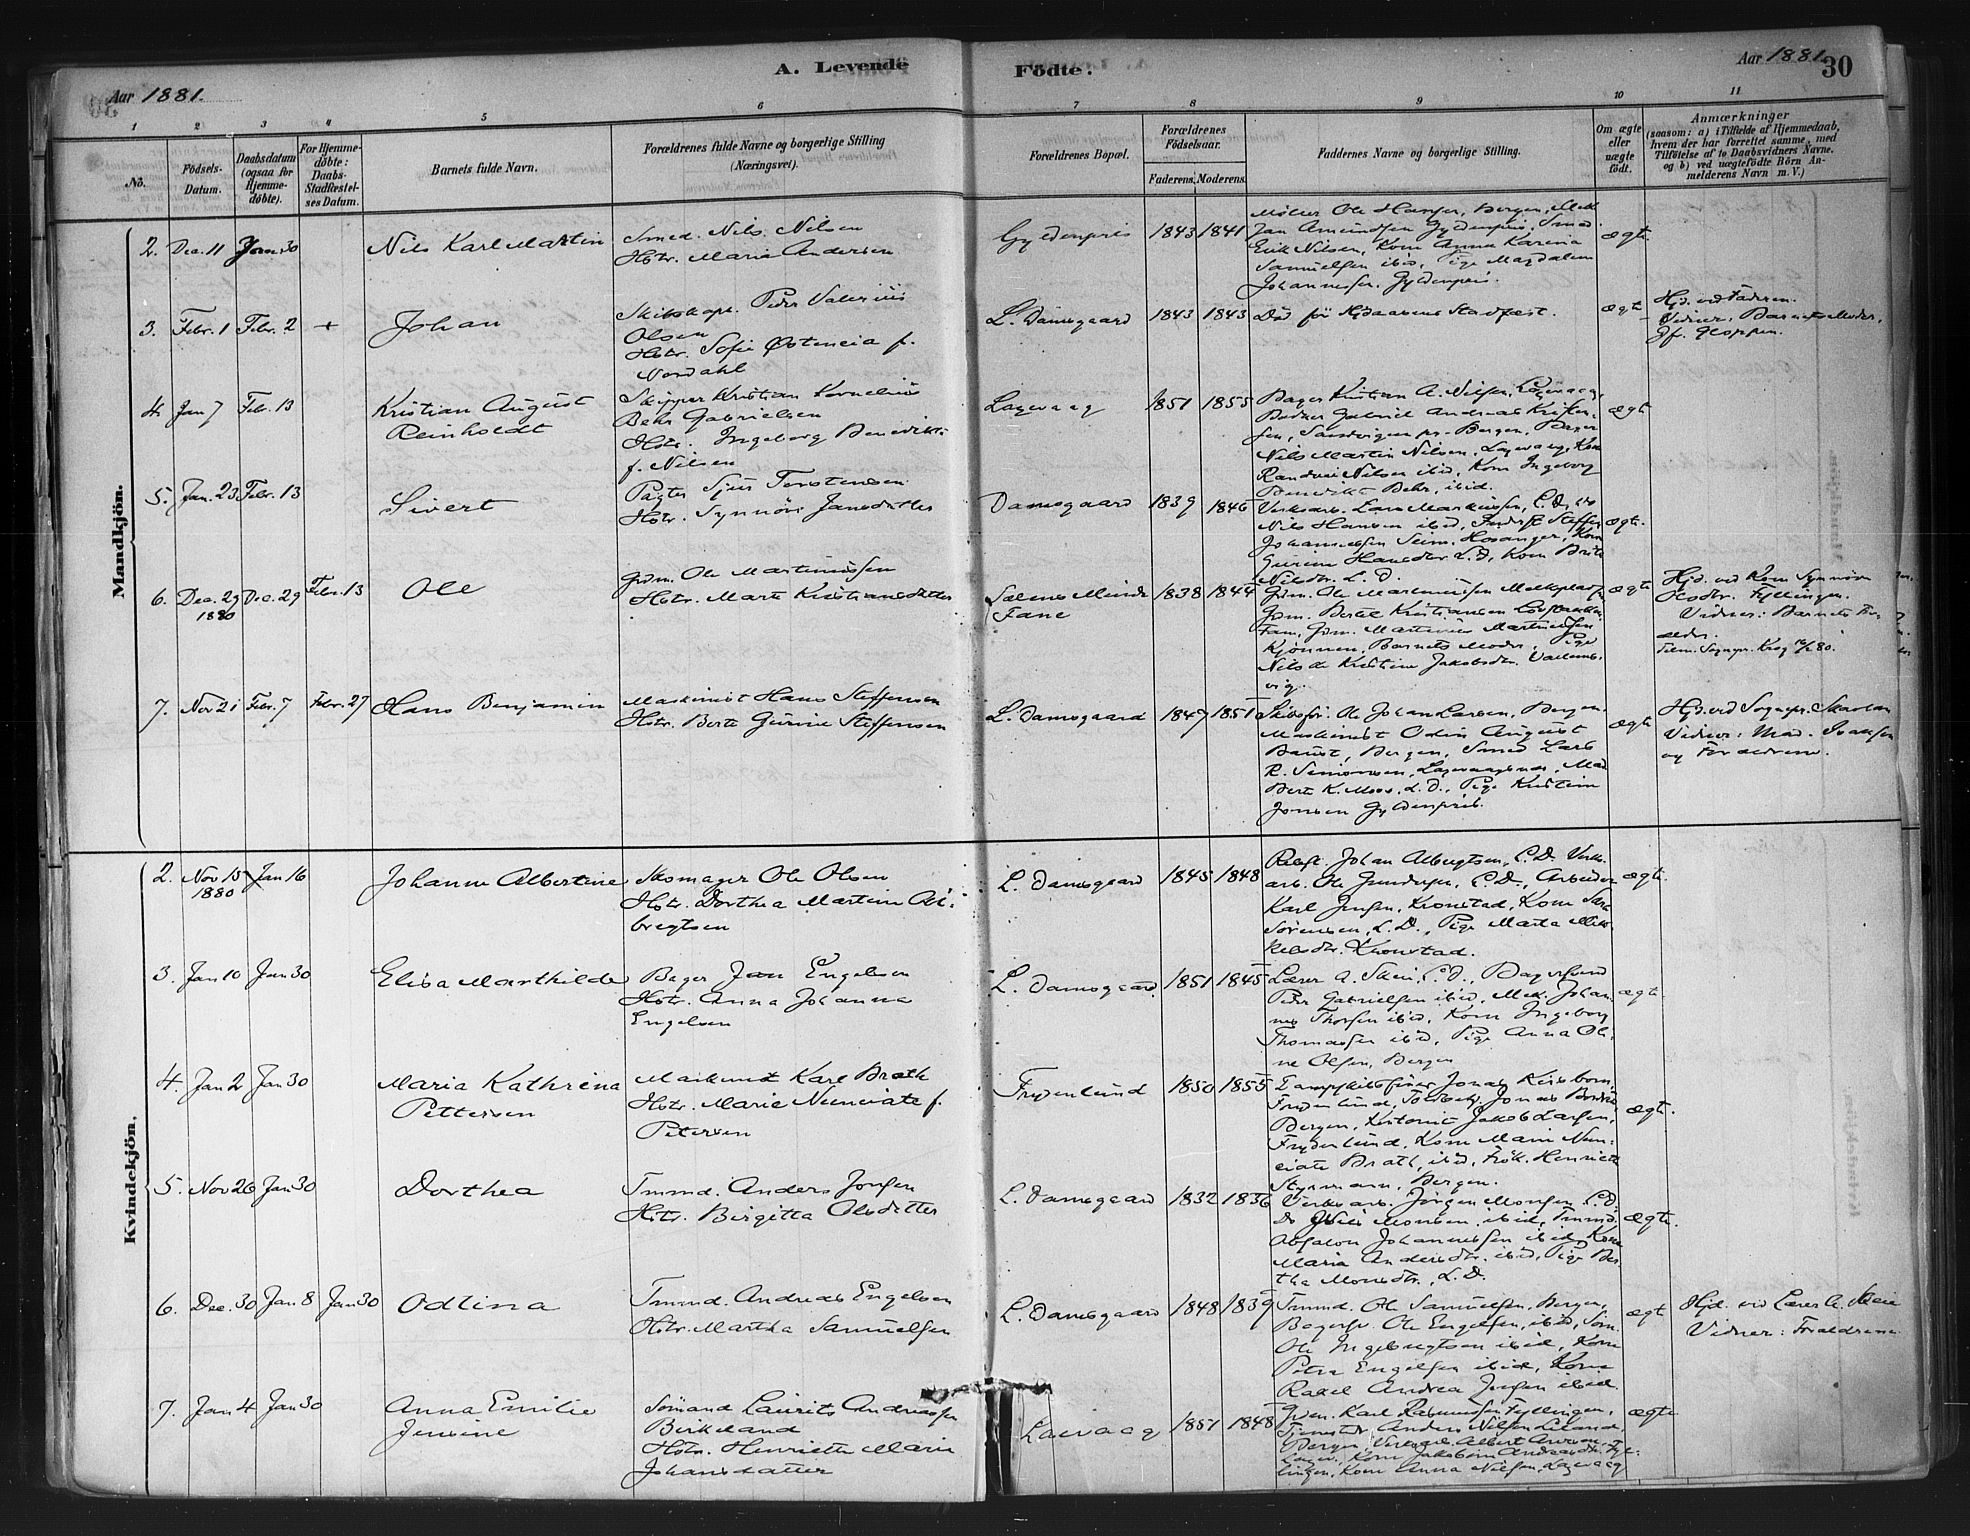 Aar 1881.
A. Levende
Födte.
Aar 1881.
30
1 2 3 4 5 6 7 8 9 10 11
No.
Födsels-
Datum.
Daabsdatum
(ogsaa for
Hjemme-
döbte).
For Hjemme-
döbte:
Daabs-
Stadfæstel-
ses Datum.
Barnets fulde Navn.
Forældrenes fulde Navne og borgerlige Stilling
(Næringsvei).
Forældrenes Bopæl.
Forældrenes
Födselsaar.
Faderens. Moderens.
Faddernes Navne og borgerlige Stilling.
Om ægte
eller
uægte
födt.
Anmærkninger
(saasom: a) i Tilfælde af Hjemmedaab,
hvem der har forrettet samme, med
Tilföielse af to Daabsvidners Navne,
og b) ved uægtefödte Börn An-
melderens Navn m. V.)
Mandkjön.
2. Dec. 11 Jan 30
Nils Karl Martin
Smed. Nils Nilsen
Hstr. Maria Andersen
Gyldenpris
1843 1841
Ole Hansen, Bergen,
Jan Amundsen Gyldenpris, Smed
Erik Nilsen, Kone Anna Karina
Samuelsen ibid, Pige Magdalene
Johannessen. Gyldenpris.
ægte
3. Febr. 1 Febr. 2 +
Johan
Peder Valerius
Olsen
Hstr. Sofie Østensia f.
Nordahl
L. Damsgaard
1843 1843
Død før Hjdaabens Stadfæst.
ægte
Hjd. ved Faderen.
Vidner: Barnets Moder,
4. Jan 7 Febr. 13
Kristian August
Reinholdt
Skipper Kristian Kornelius
Behr Gabrielsen
Hstr. Ingeborg Benedikte
f. Nilsen
Laxevaag
1851 1855
Bager Kristian A. Nilsen, Laxevaag,
Gabriel Andreas
Sandvigen pr. Bergen,
Nils Martin Nilsen, Laxevaag, Kone
Nilsen ibid, Kone Ingeborg
Benedikte Behr, ibid.
ægte
5. Jan. 23 Febr. 13
Sivert
Sjur Torstensen
Hstr. Synnöve Jansdatter
Damsgaard
1839 1846
Verksarb. Lars Markussen, L. D.,
Nils Hansen ibid, Steffen
Johannessen Seim, Hosanger, Kone
Hansdtr L. D, Kone Brite
Nilsdtr. L. D.
ægte
6. Dec. 29 Dec. 29 Febr. 13
1880
Ole
Grdm. Ole Martinussen
Hstr. Marte Kristiansdatter
Fane
1838 1844
Grdm. Ole Martinussen
Grdm. Bertel Kristiansen
Fane, Grdm.
Barnets Moder, Pige
Kristine Jakobsdtr.
vig.
ægte
Hjd. ved Kone Synnøve
Fyllingen.
Vidner: Barnets For-
ældre.
7. Nov 21 Febr. 7 Febr. 27
Hans Benjamin
Maskinist Hans Steffensen
Hstr. Berte Gurine Steffensen
L. Damsgaard
1847 1851
Skibsfør. Ole Johan Larsen, Bergen,
Maskinist Odin August
Bergen, Smed Lars
R. Simonsen, Laxevaagsnæs, Mad
Berte K. Moss, L. D., Pige Kristine
Jonsen Gyldenpris.
ægte
Hjd. ved Sognepr.
Vidner: Mad. Isaksen
og Forældrene.
Kvindekjön.
2. Nov 15 Jan 16
1880
Johanne Albertine
Skomager Ole Olsen
Hstr. Dorthea Martine Al-
bregtsen
L. Damsgaard
1845 1848
Johan Albregtsen, L. D. Verks-
arb. Ole Gundersen, L. D., Arbeider
Karl Jensen, Kronstad, Kone
Sørensen, L. D., Pige Marta Mik-
kelsdtr. Kronstad.
ægte.
3. Jan 10 Jan 30
Elisa Marthilde
Bager Jan Engelsen
Hstr. Anna Johanna
Engelsen
L. Damsgaard.
1851 1845
Lærer A. Skeie, L. D., Bagersvend
Peder Gabrielsen ibid, Mek. Johan-
nes Thorsen ibid, Kone Ingeborg
Thomassen ibid, Pige Anna Oli-
ne Olsen, Bergen
ægte.
4. Jan 2 Jan 30
Maria Kathrina
Pettersen
Maskinist Karl Brath
Hstr. Marie Nunciate f.
Petersen
Frydenlund
1850 1855
Dampskibsfører Jonas
Frydenlund, Jonas
Bergen, Jakob Larsen,
Frydenlund, Kone Marie Nun-
ciate Brath, ibid, Frøk. Henriette
Styrmann, Bergen.
ægte.
5. Nov 26 Jan 30
Dorthea
Tmmd. Anders Jonsen
Hstr. Birgitta Olsdatter
L. Damsgaard
1832 1836
Verksarb. Jörgen Monsen L. D.
Do Nils Monsen ibid, Tmmd.
Absalon Johannessen ibid, Kone
Maria Andersdtr. ibid, Pige Ber-
tha Monsdtr, L. D.
ægte.
6. Dec. 30 Jan. 8 Jan 30
Odlina
Tmmd. Andreas Engelsen
Hstr. Martha Samuelsen
L. Damsgaard
1848 1839
Tmmd. Ole Samuelsen, Bergen,
Ole Engelsen, ibid, Söm.
Ole Ingebrigtsen ibid, Kone
Petra Engelsen ibid, Kone
Rakel Andrea Jensen ibid.
ægte
Hjd. ved Lærer A. Skeie
Vidner: Forældrene
7. Jan 4 Jan 30
Anna Emilie
Jensine
Sömand Laurits Andreassen
Birkeland
Hstr. Henriette Marie
Johansdatter
Laxevaag
1851 1848
Grdm. Karl Rasmussen Fyllingen,
Anders Nilsen
Bergen, Albert
Kone Jakobine Andreasdtr. Fyl-
lingen, Kone Anna Nilsen, Laxevaag
ægte